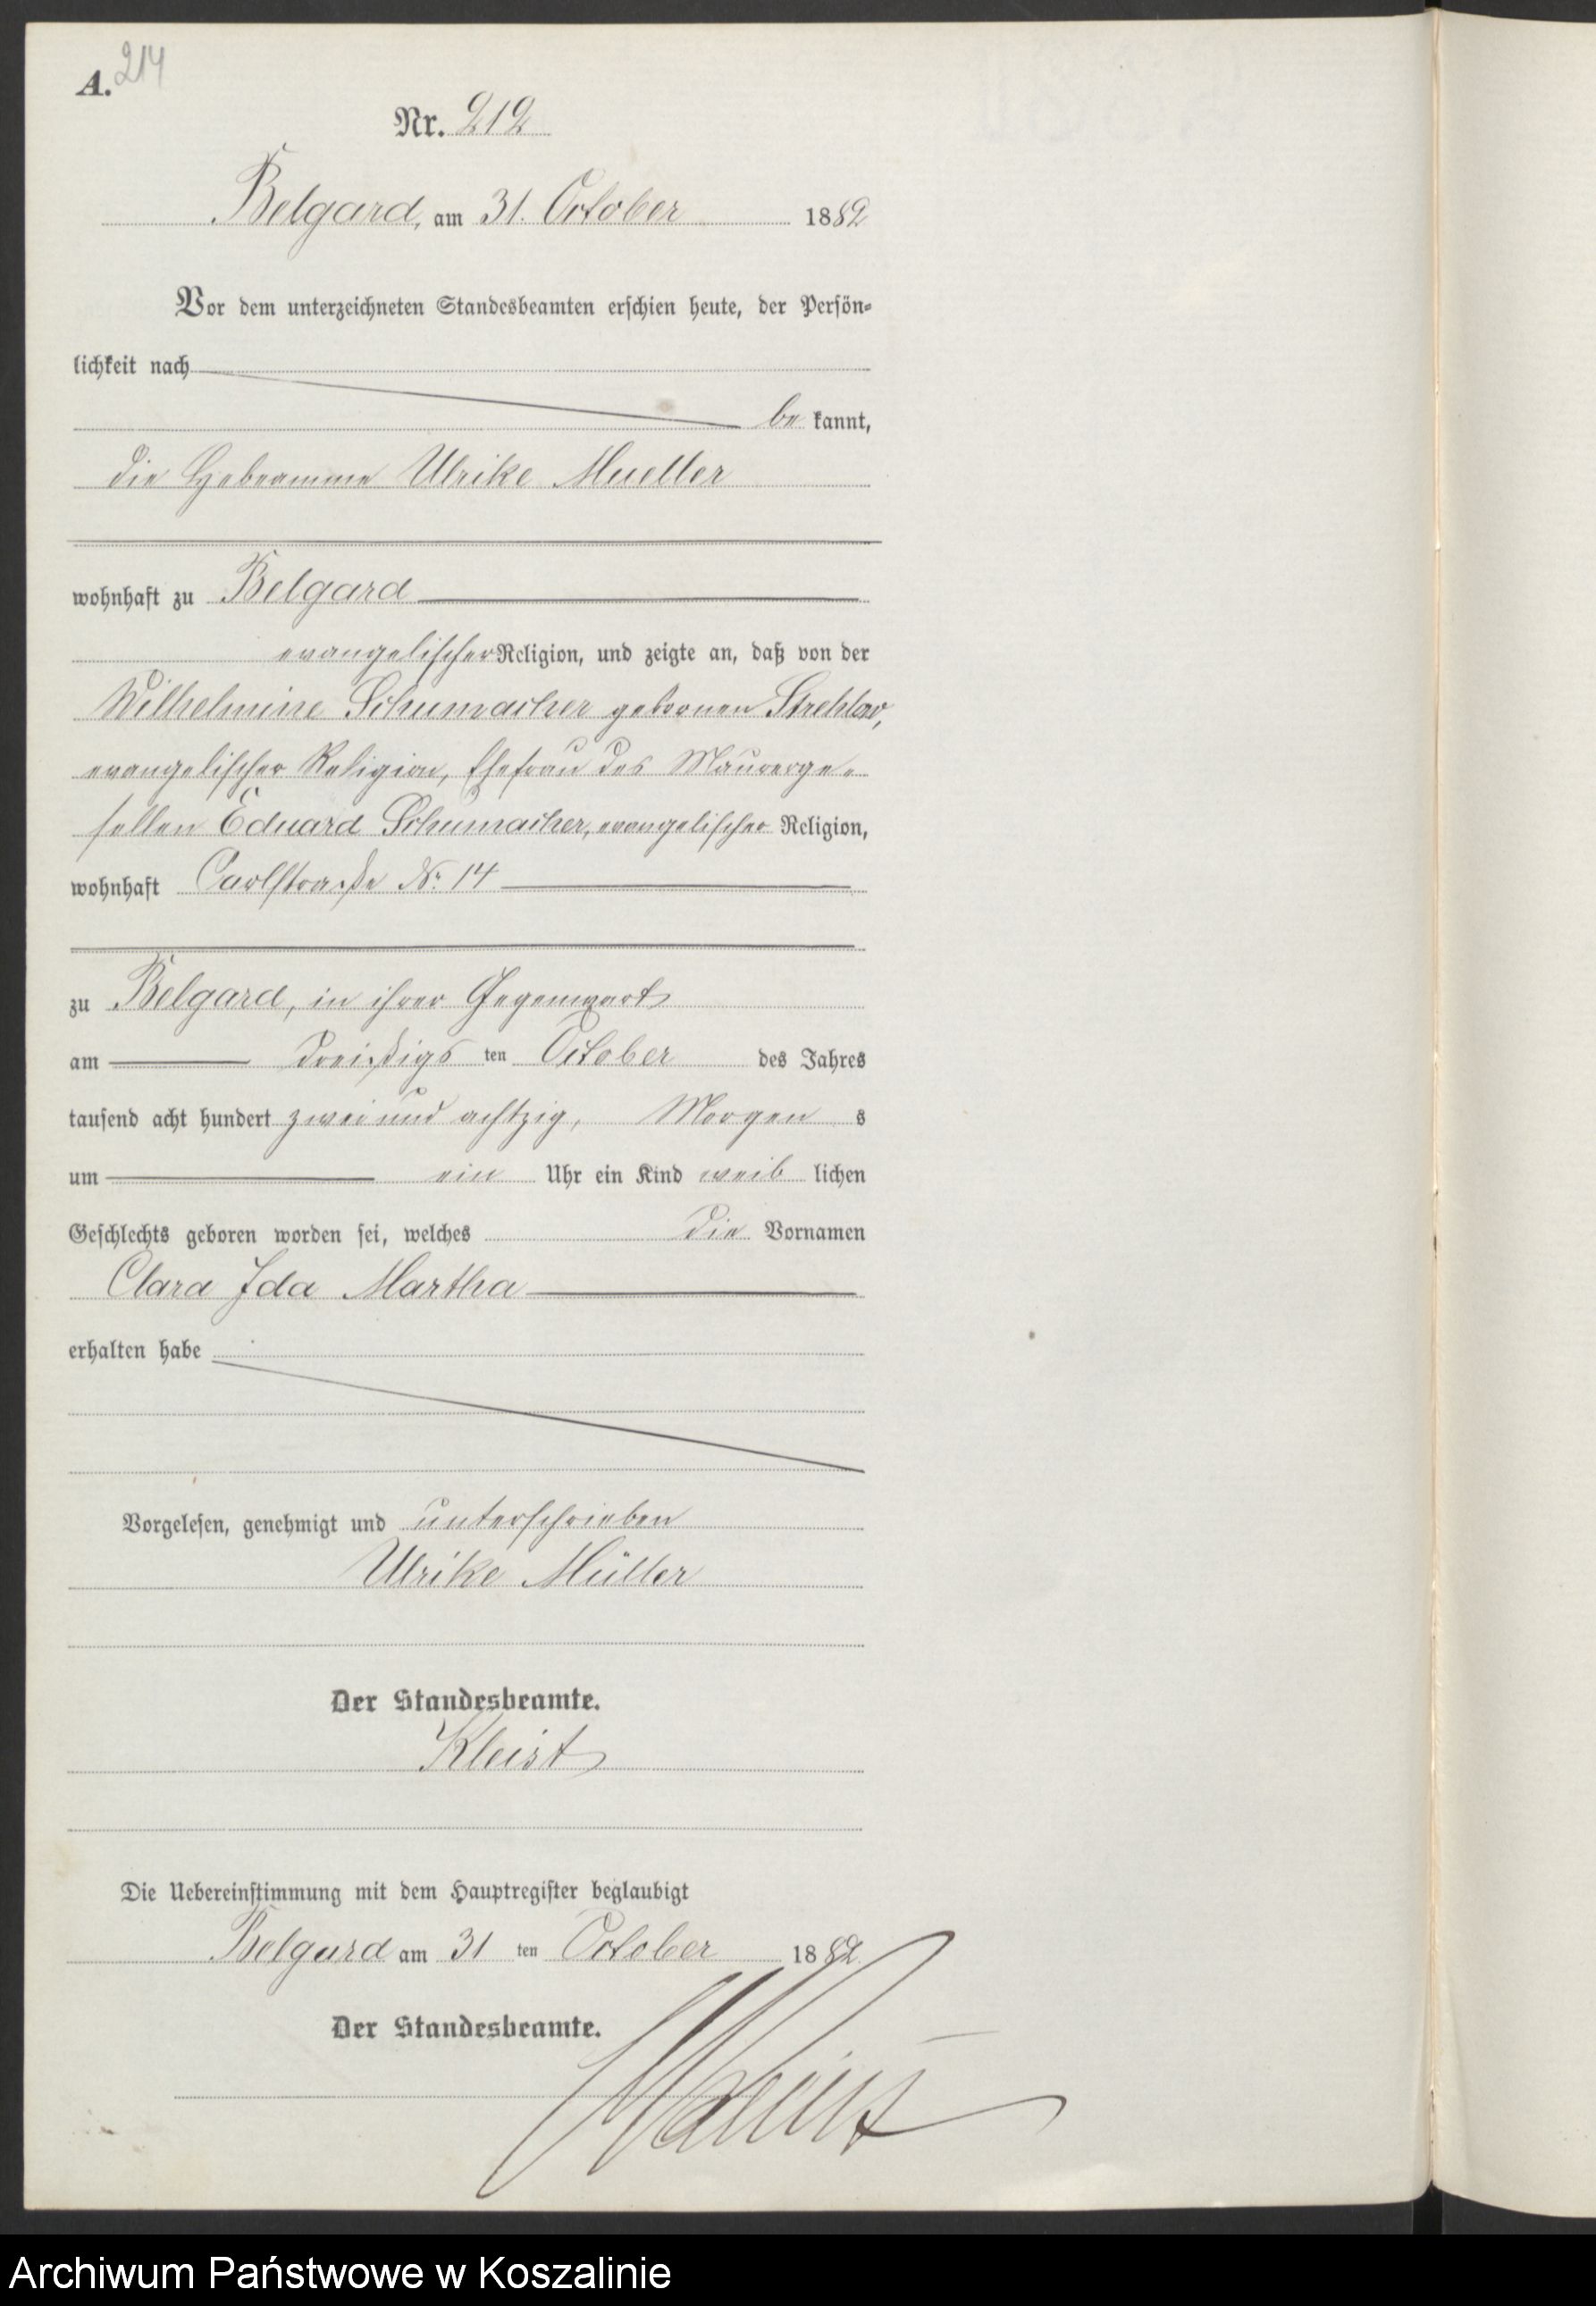 A. 214
Nr. 212
Belgard, am 31. October 1882
Vor dem unterzeichneten Standesbeamten erschien heute, der Persön-
lichkeit nach
be kannt,
die Hebeamme Ulrike Mueller
wohnhaft zu Belgard
evangelischer Religion, und zeigte an, daß von der
Wilhelmine Schumacher gebornen Strehlow,
evangelischer Religion, Ehefrau des Maurerge-
sellen Eduard Schumacher, evangelischer Religion,
wohnhaft Carlstraße Nr. 14
zu Belgard, in ihrer Gegenwart
am dreißigs ten October des Jahres
tausend acht hundert zwei und achtzig, Morgen s
um ein Uhr ein Kind weib lichen
Geschlechts geboren worden sei, welches die Vornamen
Clara Ida Martha
erhalten habe
Vorgelesen, genehmigt und unterschrieben
Ulrike Müller
Der Standesbeamte.
Kleist
Die Uebereinstimmung mit dem Hauptregister beglaubigt
Belgard am 31 ten October 1882
Der Standesbeamte.
Archiwum Państwowe w Koszalinie